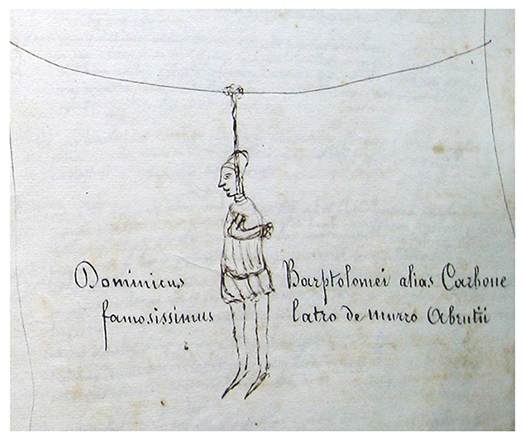 Dominicus Bartolomei alias Carbone
famosissimus latro de murro Abrutii